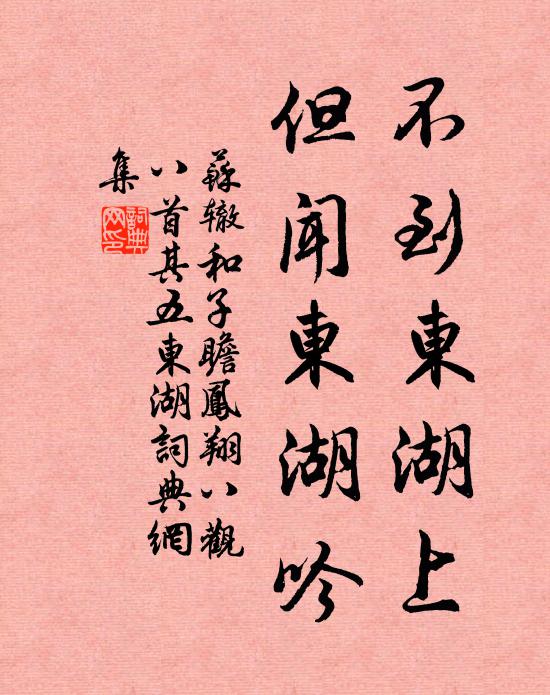 不到東湖上
但聞東湖吟
蘇辙和子瞻鳳翔八觀
八首其五東湖詞典網
集
詞典
网印